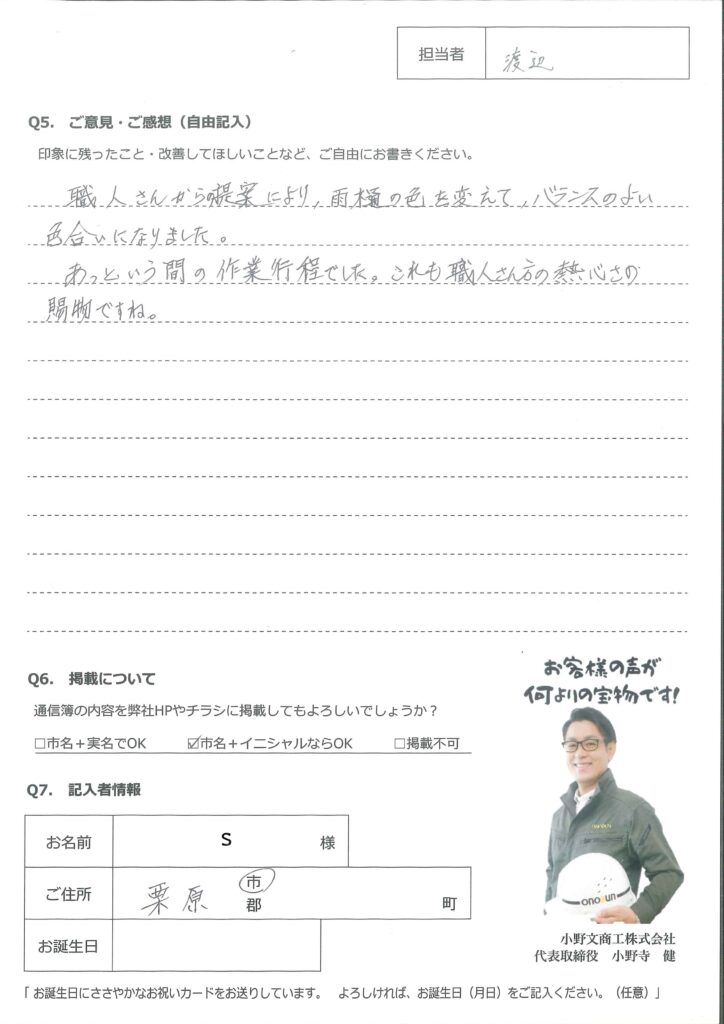 担当者 渡辺
Q5. ご意見・ご感想（自由記入）
印象に残ったこと・改善してほしいことなど、ご自由にお書きください。
職人さんからの提案により，雨樋の色を変えて，バランスのよい
色合いになりました。
あっという間の作業行程でした。これも職人さん方の熱心さの
賜物ですね。
Q6. 掲載について
通信簿の内容を弊社HPやチラシに掲載してもよろしいでしょうか？
□市名＋実名でOK ☑市名＋イニシャルならOK □掲載不可
お客様の声が
何よりの宝物です!
Q7. 記入者情報
お名前 S 様
ご住所 栗原 市 郡 町
お誕生日
onobun
小野文商工株式会社
代表取締役 小野寺 健
「お誕生日にささやかなお祝いカードをお送りしています。 よろしければ、お誕生日（月日）をご記入ください。（任意）」